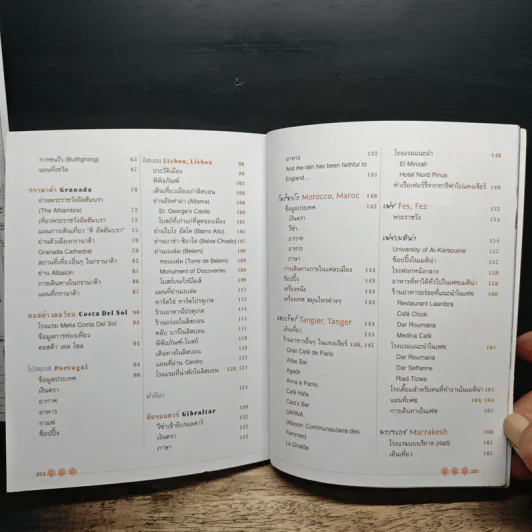 การชนวัว (Bullfighting) 65
แผนที่เซวิย่า 67
กรานาด้า Granada 70
ย่านพระราชวังอัลฮัมบรา
(The Alhambra) 73
เที่ยวพระราชวังอัลฮัมบรา
แผนการเดินเที่ยว "ดิ อัลฮัมบรา"
ย่านตัวเมืองกรานาด้า
Granada Cathedral
สถานที่เที่ยวอื่นๆ ในกรานาด้า
ย่าน Albaicin
การเดินทางในกรานาด้า 86
แผนที่กรานาด้า 87
คอสต้า เดล โซล Costa Del Sol 90
โรงแรม Melia Costa Del Sol 93
ข้อมูลการท่องเที่ยว
คอสต้า เดล โซล 94
โปรตุเกส Portugal
ข้อมูลประเทศ 96
เงินตรา
อากาศ
อาหาร
กาแฟ
ช้อปปิ้ง
202
ลิสบอน Lisbon, Lisboa 98
ประวัติเมือง
พิพิธภัณฑ์ 102
เดินเที่ยวเมืองเก่าลิสบอน 106
ย่านอัลฟาม่า (Alfama) 106
St. George's Castle 106
โบสถ์ที่เก่าแก่ที่สุดของเมือง 107
ย่านไบโร อัลโต (Bairro Alto) 107
ย่านบาช่า-ชิอาโด (Baixa-Chiado) 107
ย่านเบเล็ม (Belem) 109
หอเบเล็ม (Torre de Belem)
Monument of Discoveries
โบสถ์เจอโรนิโมส์
แผนที่ย่านเบเล็ม
ทาร์ตไข่ ทาร์ตโปรตุเกส
ร้านอาหารโปรตุเกส 114
ร้านอร่อยในลิสบอน
คลับ บาร์ในลิสบอน
พิพิธภัณฑ์-โบสถ์
เดินทางในลิสบอน
แผนที่ย่าน Centro
โรงแรมที่น่าพักในลิสบอน 120, 121
ฟาติมา 124
ยิบรอลตาร์ Gibraltar 130
วีซ่าเข้ายิบรอลตาร์ 131
เงินตรา 131
ภาษา
อาหาร 132
And the rain has been faithful to
England... 135
โมร็อกโก Morocco, Maroc 140
ข้อมูลประเทศ 142
เงินตรา
วีซ่า
อากาศ
อาหาร
ภาษา
การเดินทางภายในแต่ละเมือง 143
ช้อปปิ้ง 143
เครื่องหนัง 143
เครื่องเทศ สมุนไพรต่างๆ 143
แทงเจียร์ Tangier, Tanger 144
เดินเที่ยว
ร้านอาหารอื่นๆ ในแทงเจียร์ 146, 147
Gran Café de Paris
Atlas Bar
Agadir
Anna e Paolo
Café Hafa
Caid's Bar
DARNA
(Maison Communautaire des
Femmes)
La Giralda
โรงแรมแนะนำ 148
El Minzah
Hotel Nord Pinus
ค่าเรือเฟอร์รี่จากทารีฟาไปแทงเจียร์ 149
เฟซ Fes, Fez 152
พระราชวัง 154
เฟซเมดิน่า 154
University of Al-Karaouine 157
ช้อปปิ้งในเมดิน่า 157
โรงฟอกหนังกลาง 158
อาหารที่หาได้ทั่วไปในเฟซเมดิน่า 159
ร้านอาหารอร่อยที่แนะนำในเฟซ 160
Restaurant Laanibra
Café Clock
Dar Roumana
Medina Café
โรงแรมที่แนะนำ 161
Dar Roumana
Dar Seffarine
Riad Tizwa
แผนที่เฟซ
การเดินทางในเฟซ 165
มาราเกช Marrakesh 166
โรงแรมแบบรียาด (riad) 167
เดินเที่ยว 167
203